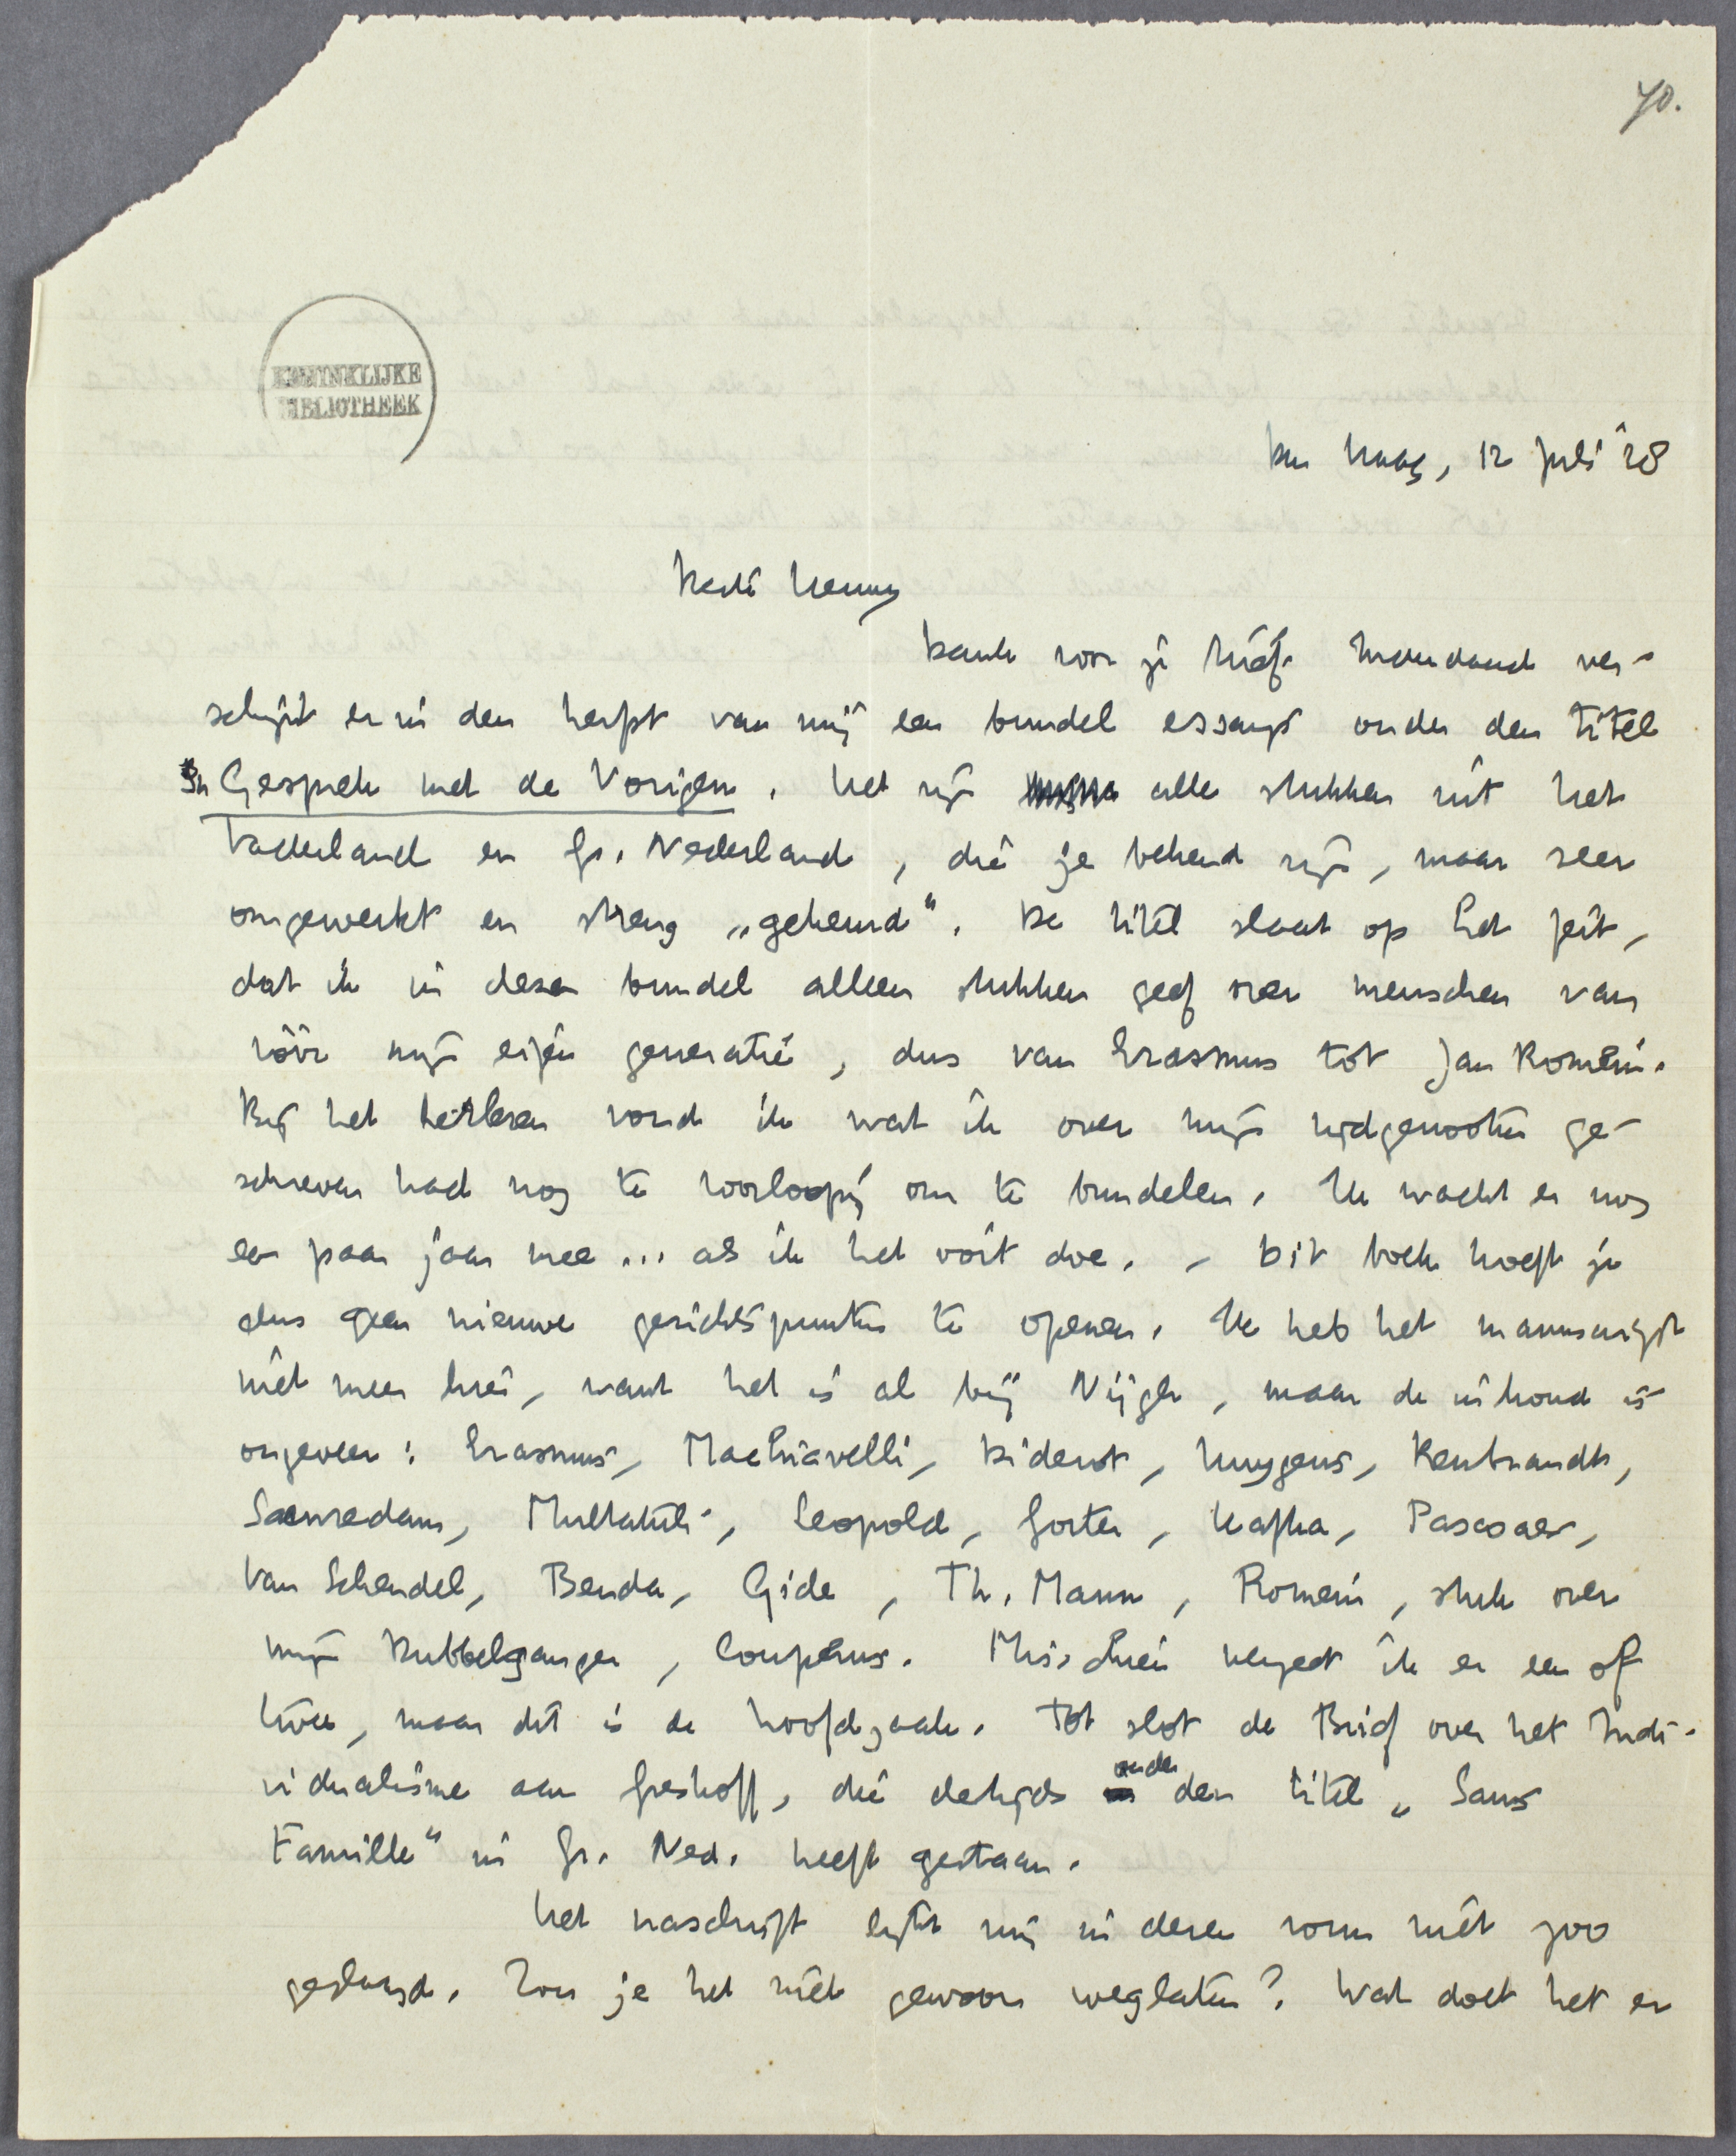 70.
KONINKLIJKE
BIBLIOTHEEK
Den Haag, 12 Juli '38
Beste Henny
Dank voor je brief. Inderdaad ver-
schijnt er in den herfst van mij een bundel essays onder den titel
In Gesprek met de Vorigen. Het zijn alle stukken uit het
Vaderland en Gr. Nederland, die je bekend zijn, maar zeer
omgewerkt en streng „gekeurd". De titel slaat op het feit,
dat ik in dezen bundel alleen stukken geef over menschen van
vóór mijn eigen generatie, dus van Erasmus tot Jan Romein.
Bij het herlezen vond ik wat ik over mijn tijdgenooten ge-
schreven had nog te voorloopig om te bundelen. Ik wacht er nog
een paar jaar mee ... als ik het ooit doe. – Dit boek hoeft je
dus geen nieuwe gezichtspunten te openen. Ik heb het manuscript
niet meer hier, want het is al bij Nijgh, maar de inhoud is
ongeveer: Erasmus, Machiavelli, Diderot, Huygens, Rembrandt,
Saenredam, Multatuli, Leopold, Gorter, Kafka, Pascoaes,
Van Schendel, Benda, Gide, Th. Mann, Romein, stuk over
mijn Dubbelganger, Couperus. Misschien vergeet ik er een of
twee, maar dit is de hoofdzaak. Tot slot de Brief over het Indi-
vidualisme aan Greshoff, die destijds onder den titel „Sans
Famille" in Gr. Ned. heeft gestaan.
Het naschrift lijkt mij in dezen vorm niet zoo
geslaagd. Zou je het niet gewoon weglaten? Wat doet het er